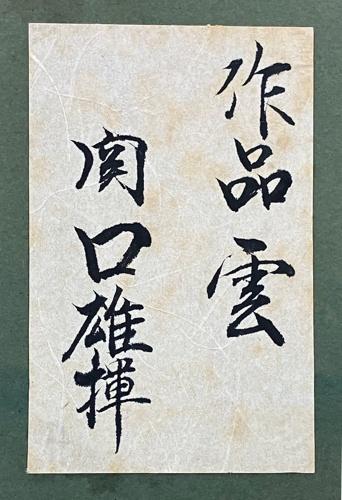 作品 雲
関口雄揮